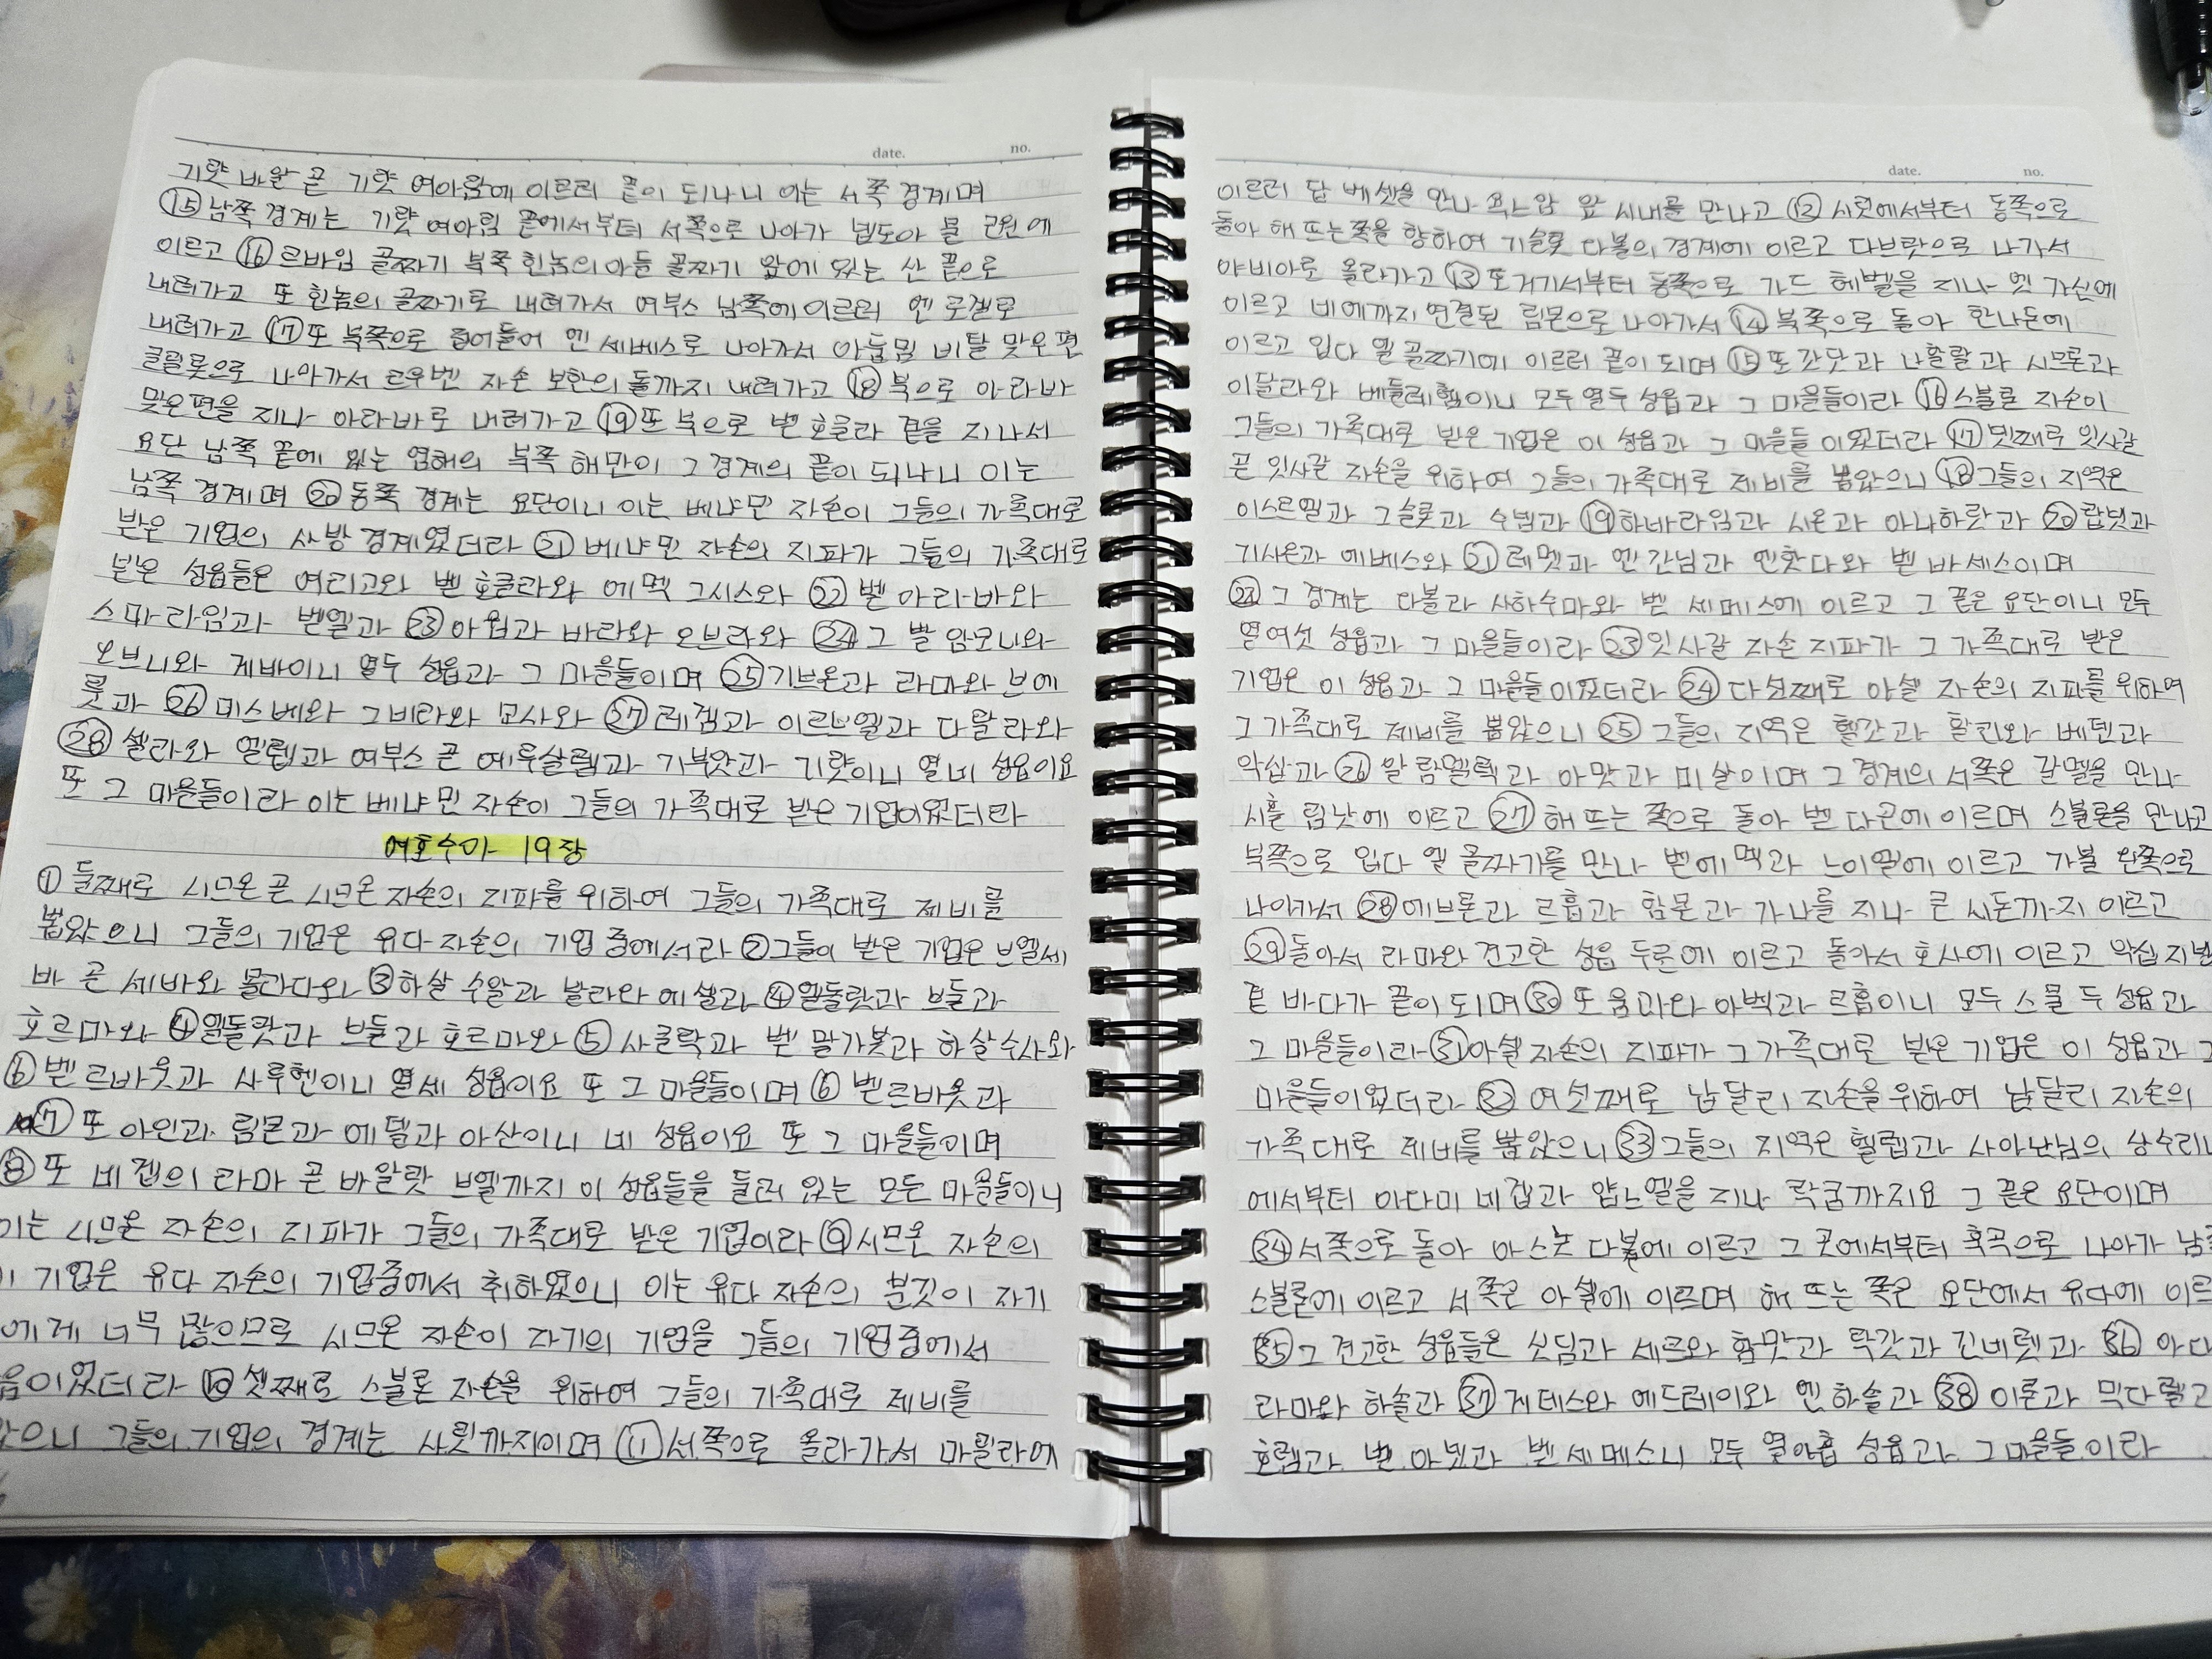 date. no.
기럇 바알 곧 기럇 여아림에 이르러 끝이 되나니 이는 서쪽 경계며
⑮남쪽 경계는 기럇 여아림 끝에서부터 서쪽으로 나아가 넵도아 물 근원에
이르고 ⑯르바임 골짜기 북쪽 힌놈의 아들 골짜기 앞에 있는 산 끝으로
내려가고 또 힌놈의 골짜기로 내려가서 여부스 남쪽에 이르러 엔 로겔로
내려가고 ⑰또 북쪽으로 접어들어 엔 세메스로 나아가서 아둠밈 비탈 맞은 편
글릴롯으로 나아가서 르우벤 자손 보한의 돌까지 내려가고 ⑱북으로 아라바
맞은편을 지나 아라바로 내려가고 ⑲또 북으로 벧 호글라 곁을 지나서
요단 남쪽 끝에 있는 염해의 북쪽 해만이 그 경계의 끝이 되나니 이는
남쪽 경계며 ⑳동쪽 경계는 요단이니 이는 베냐민 자손이 그들의 가족대로
받은 기업의 사방 경계였더라 ㉑베냐민 자손의 지파가 그들의 가족대로
받은 성읍들은 여리고와 벧 호글라와 에멕 그시스와 ㉒벧 아라바와
스마라임과 벧엘과 ㉓아윔과 바라와 오브라와 ㉔그발 암모니와
오브니와 게바이니 열두 성읍과 그 마을들이며 ㉕기브온과 라마와 브에
롯과 ㉖미스베와 그비라와 모사와 ㉗레겜과 이르브엘과 다랄라와
㉘셀라와 엘렙과 여부스 곧 예루살렘과 기부앗과 기럇이니 열네 성읍이요
또 그 마을들이라 이는 베냐민 자손이 그들의 가족대로 받은 기업이었더라
여호수아 19장
①둘째로 시므온 곧 시므온 자손의 지파를 위하여 그들의 가족대로 제비를
뽑았으니 그들의 기업은 유다 자손의 기업 중에서라 ②그들이 받은 기업은 브엘세
바 곧 세바와 몰라다와 ③하살 수알과 발라와 에셈과 ④엘돌랏과 브둘과
호르마와 ④엘돌랏과 브둘과 호르마와 ⑤시글락과 벧 말가봇과 하살수사와
⑥벧 르바옷과 사루헨이니 열세 성읍이요 또 그 마을들이며 ⑥벧르바옷과
⑦또 아인과 림몬과 에델과 아산이니 네 성읍이요 또 그 마을들이며
⑧또 네겝의 라마 곧 바알랏 브엘까지 이 성읍들을 둘러 있는 모든 마을들이니
이는 시므온 자손의 지파가 그들의 가족대로 받은 기업이라 ⑨시므온 자손의
이 기업은 유다 자손의 기업중에서 취하였으니 이는 유다 자손의 분깃이 자기
에게 너무 많으므로 시므온 자손이 자기의 기업을 그들의 기업중에서
음이었더라 ⑩셋째로 스불론 자손을 위하여 그들의 가족대로 제비를
았으니 그들의 기업의 경계는 사릿까지이며 ⑪서쪽으로 올라가서 마랄라에
date. no.
이르러 답베셋을 만나 욕느암 앞 시내를 만나고 ⑫사릿에서부터 동쪽으로
돌아 해 뜨는 쪽을 향하여 기슬롯 다볼의 경계에 이르고 다브랏으로 나가서
야비아로 올라가고 ⑬또 거기서부터 동쪽으로 가드 헤벨을 지나 엣 가신에
이르고 네에까지 연결된 림몬으로 나아가서 ⑭북쪽으로 돌아 한나돈에
이르고 입다 엘 골짜기에 이르러 끝이 되며 ⑮또 갓닷과 나할랄과 시므론과
이달라와 베들레헴이니 모두 열두 성읍과 그 마을들이라 ⑯스불론 자손이
그들의 가족대로 받은 기업은 이 성읍과 그 마을들이었더라 ⑰넷째로 잇사갈
곧 잇사갈 자손을 위하여 그들의 가족대로 제비를 뽑았으니 ⑱그들의 지역은
이스르엘과 그술롯과 수넴과 ⑲하바라임과 시온과 아나하랏과 ⑳랍빗과
기시온과 에베스와 ㉑레멧과 엔 간님과 엔핫다와 벧 바세스이며
㉒그 경계는 다볼과 사하수마와 벧 세메스에 이르고 그 끝은 요단이니 모두
열여섯 성읍과 그 마을들이라 ㉓잇사갈 자손 지파가 그 가족대로 받은
기업은 이 성읍과 그 마을들이었더라 ㉔다섯째로 아셀 자손의 지파를 위하여
그 가족대로 제비를 뽑았으니 ㉕그들의 지역은 헬갓과 할리와 베덴과
악삽과 ㉖알람멜렉과 아맛과 미살이며 그 경계의 서쪽은 갈멜을 만나
시홀 림낫에 이르고 ㉗해 뜨는 쪽으로 돌아 벧 다곤에 이르며 스불론을 만나고
북쪽으로 입다 엘 골짜기를 만나 벧에멕과 느이엘에 이르고 가불 왼쪽으로
나아가서 ㉘에브론과 르홉과 함몬과 가나를 지나 큰 시돈까지 이르고
㉙돌아서 라마와 견고한 성읍 두로에 이르고 돌아서 호사에 이르고 악십 지방
곁 바다가 끝이 되며 ㉚또 움마와 아벡과 르홉이니 모두 스물 두 성읍과
그 마을들이라 ㉛아셀 자손의 지파가 그 가족대로 받은 기업은 이 성읍과 그
마을들이었더라 ㉜여섯째로 납달리 자손을 위하여 납달리 자손의
가족대로 제비를 뽑았으니 ㉝그들의 지역은 헬렙과 사아난님의 상수리나
에서부터 아다미 네겝과 얍느엘을 지나 락굼까지요 그 끝은 요단이며
㉞서쪽으로 돌아 아스놋 다볼에 이르고 그 곳에서부터 훅곡으로 나아가 남쪽
스불론에 이르고 서쪽은 아셀에 이르며 해 뜨는 쪽은 요단에서 유다에 이르
㉟그 견고한 성읍들은 싯딤과 세르와 함맛과 락갓과 긴네렛과 ㊱아다
라마와 하솔과 ㊲게데스와 에드레이와 엔 하솔과 ㊳이론과 믹다렐과
호렘과 벧 아낫과 벧 세메스니 모두 열아홉 성읍과 그 마을들이라